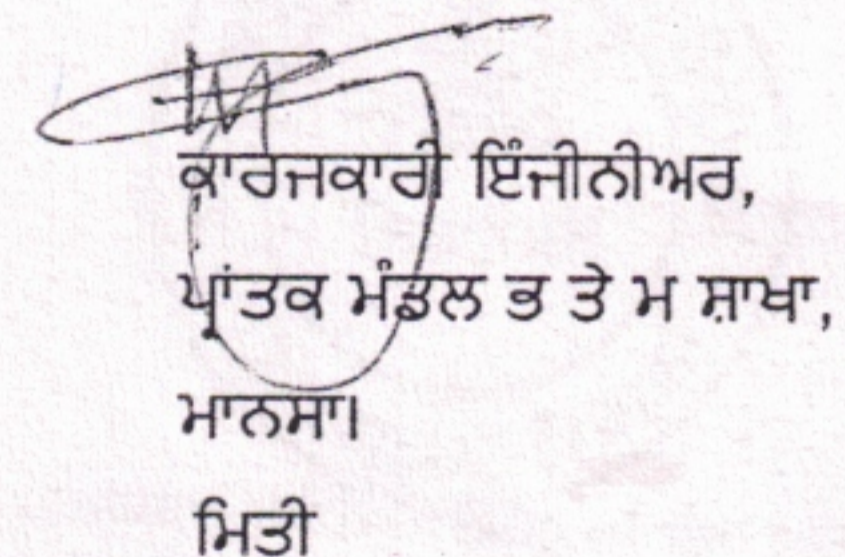 ਕਾਰਜਕਾਰੀ ਇੰਜੀਨੀਅਰ,
ਪ੍ਰਾਂਤਕ ਮੰਡਲ ਭ ਤੇ ਮ ਸ਼ਾਖਾ,
ਮਾਨਸਾ।
ਮਿਤੀ